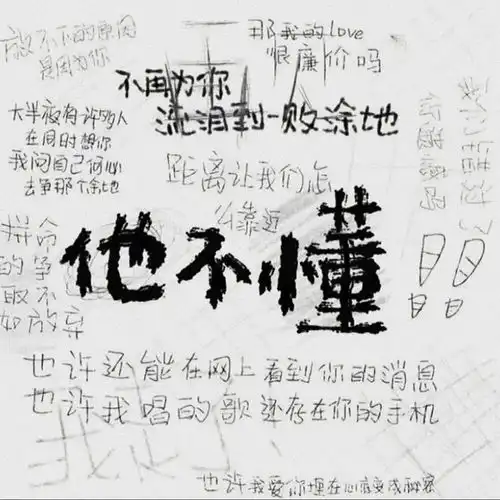 放不下的原因
是因为你
那我的love
狠廉价吗
不再为你
流泪到一败涂地
大半夜有许多人
在同时想你
我问自己何必
去争那个余地
距离让我们怎
么靠近
我们错过了
你遗憾吗
他不懂
拼命
的争
取不
如放弃
也许还能在网上看到你的消息
也许我唱的歌还存在你的手机
也许我爱你埋在心底变成秘密